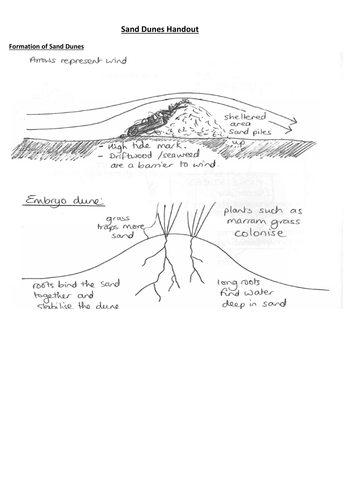 Sand Dunes Handout
Formation of Sand Dunes
Arrows represent wind
sheltered
area
sand piles
up
- High tide mark.
- Driftwood/seaweed
are a barrier to wind.
Embryo dune:
grass
traps more
sand
plants such as
marram grass
colonise
roots bind the sand
together and
stabilise the dune
long roots
find water
deep in sand